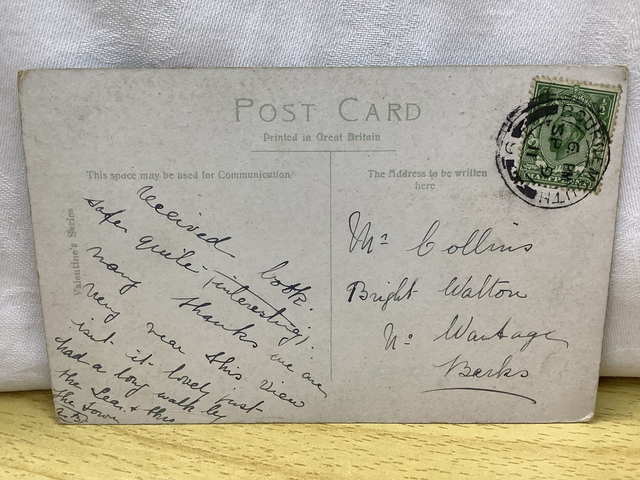 POST CARD
Printed in Great Britain
This space may be used for Communication.
The Address to be written
here
Valentine's Series
received book
safe, quite interesting!
many thanks we are
very near this view
isn't it lovely just
had a long walk by
the Sea & this
the town
Mr Collins
Bright Walton
Nr Wantage
Berks
BOURNEMOUTH
6 PM
SP 9